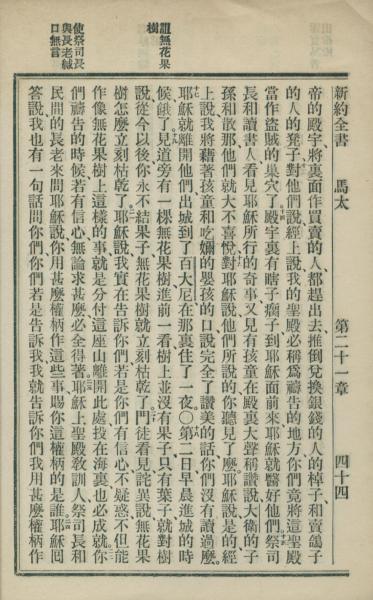 新約全書 馬太 第二十一章 四十四
帝的殿宇、將裏面作買賣的人、都趕出去、推倒兌換銀錢的人的棹子、和賣鴿子
的人的凳子、對他們說、經上說、我的聖殿必稱爲禱告的地方、你們竟將這聖殿
當作盜賊的巢穴了、殿宇裏有瞎子瘸子到耶穌面前來、耶穌就醫好他們、祭司
長和讀書人看見耶穌所行的奇事、又見有孩童在殿裏大聲稱讚說、大衞的子
孫和散那、他們就大不喜悅、對耶穌說、他們所說的你聽見了麼、耶穌說、是的、經
上說、我將藉著孩童和吃嬭的嬰孩的口、說完全了讚美的話、你們沒有讀過麼、
耶穌就離開他們、出城到了百大尼、在那裏住了一夜○第二日早晨進城的時
候餓了、見道旁有一棵無花果樹、進前一看、樹上並沒有果子、只有葉子、就對樹
說、從今以後、你永不結果子、無花果樹就立刻枯乾了、門徒看見詫異說、無花果
樹怎麼立刻枯乾了、耶穌說、我實在告訴你們、若是你們有信心不疑惑、不但能
作像無花果樹上這樣的事、就是分付這座山離開此處投在海裏、也必成就、你
們禱告的時候若有信心、無論求甚麼、必全得著、耶穌上聖殿敎訓人、祭司長和
民間的長老來問耶穌說、你用甚麼權柄作這些事、賜你這權柄的是誰、耶穌囘
答說、我也有一句話問你們、你們若是告訴我、我就告訴你們我用甚麼權柄作
詛無花果
樹
使祭司長
與長老緘
口無言